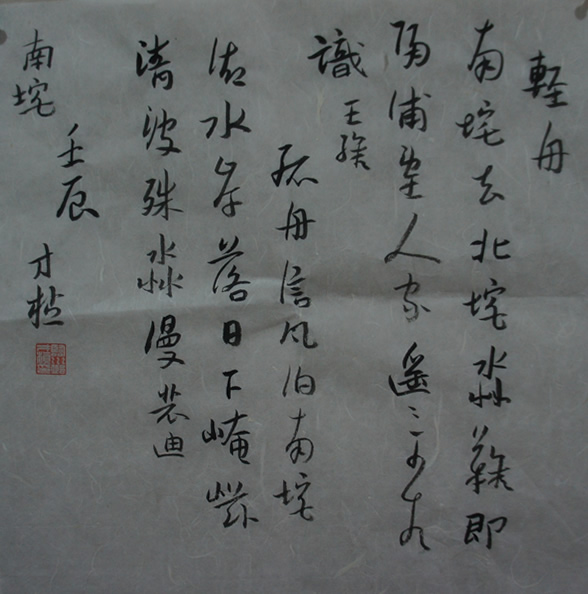 軽舟
南垞去北垞淼難即
隔浦望人家遥〻不相
識 王維
孤舟信風泊南垞
湖水岸落日下崦嵫
清波殊淼漫 裴迪
南垞
壬辰
才植